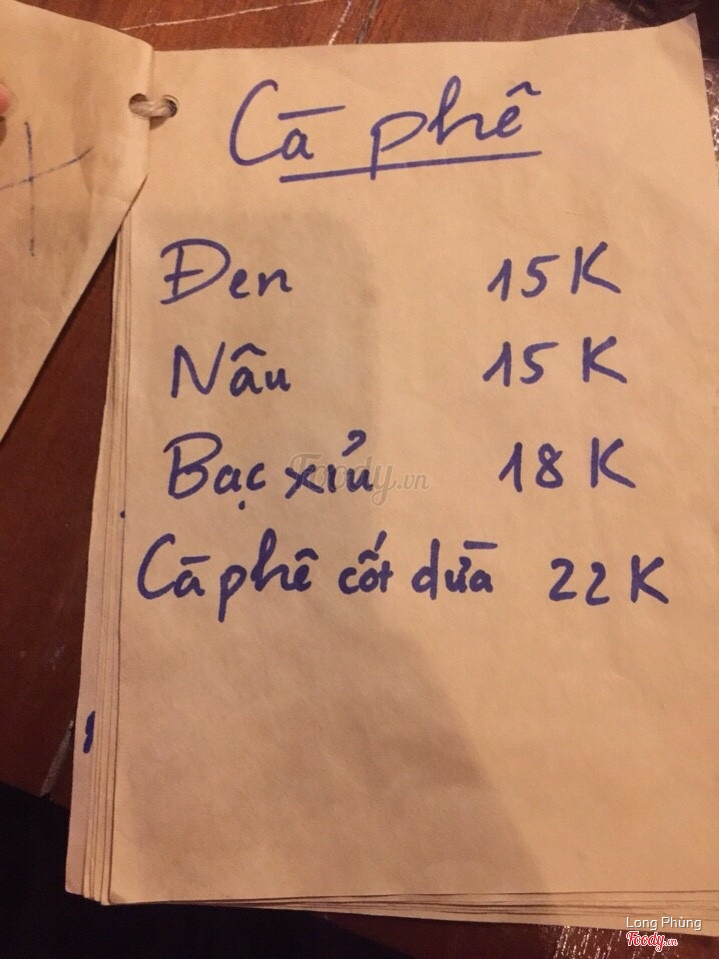 Cà phê
Đen 15K
Nâu 15K
Bạc xỉu 18K
Cà phê cốt dừa 22K
Foody.vn
Long Phùng
Foody.vn